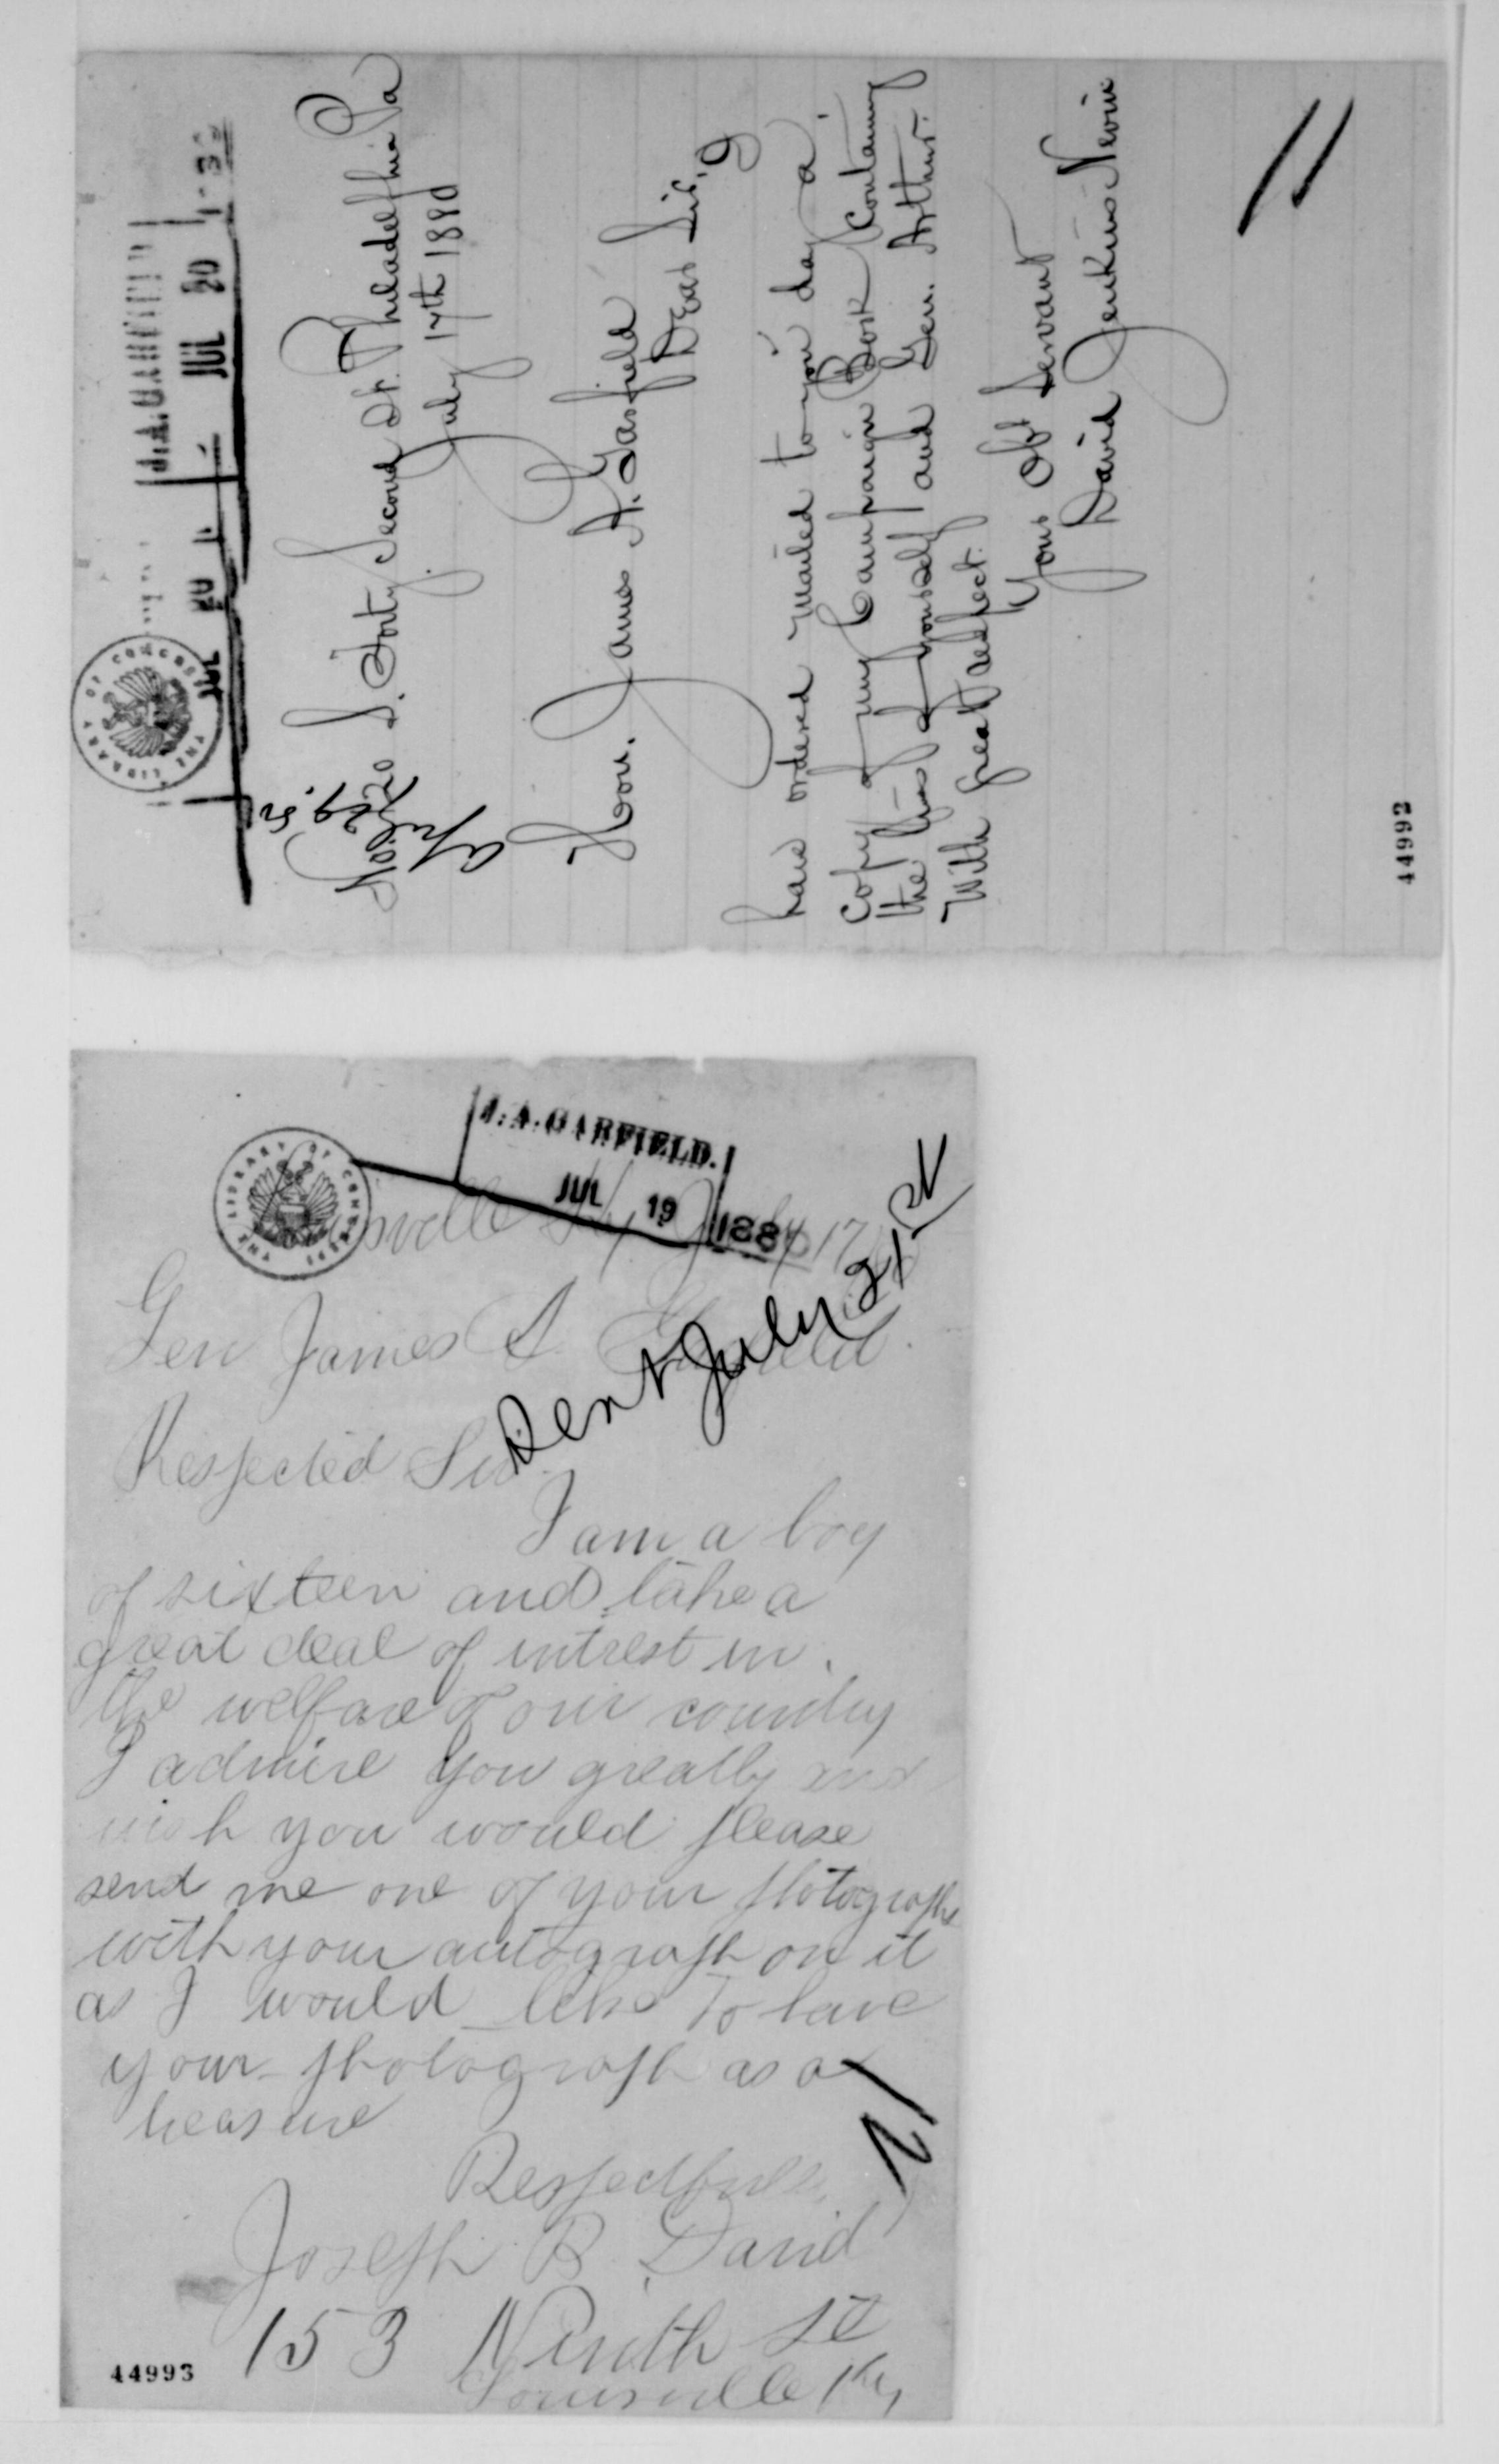 J.A. GARFIELD
JUL 20
THE LIBRARY OF CONGRESS
No. 720 S. Forty Second St. Philadelphia Pa
July 17th 1880
Hon. James A. Garfield
Dear Sir, I
have ordered mailed to you day a
copy of my Campaign Book containing
the lives of yourself and Gen. Arthur.
With great respect.
Your Obt Servant
David Jenkins Nevin
44992
THE LIBRARY OF CONGRESS
J.A. GARFIELD.
JUL 19 1880
Louisville Ky July 17
Gen James A. Garfield.
Sent July 21st
Respected Sir
I am a boy
of sixteen and take a
great deal of intrest in
the welfare of our country
I admire you greatly and
wish you would please
send me one of your photographs
with your autograph on it
as I would like to have
your photograph as a
treasure
Respectfully
Joseph B. David
153 Ninth St
Louisville Ky
44993